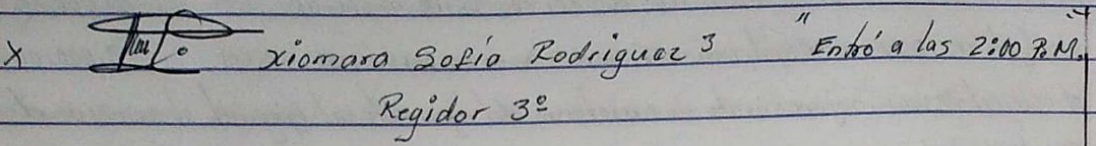 X Xiomara Sofía Rodriguez 3 "Entró a las 2:00 P.M."
Regidor 3º